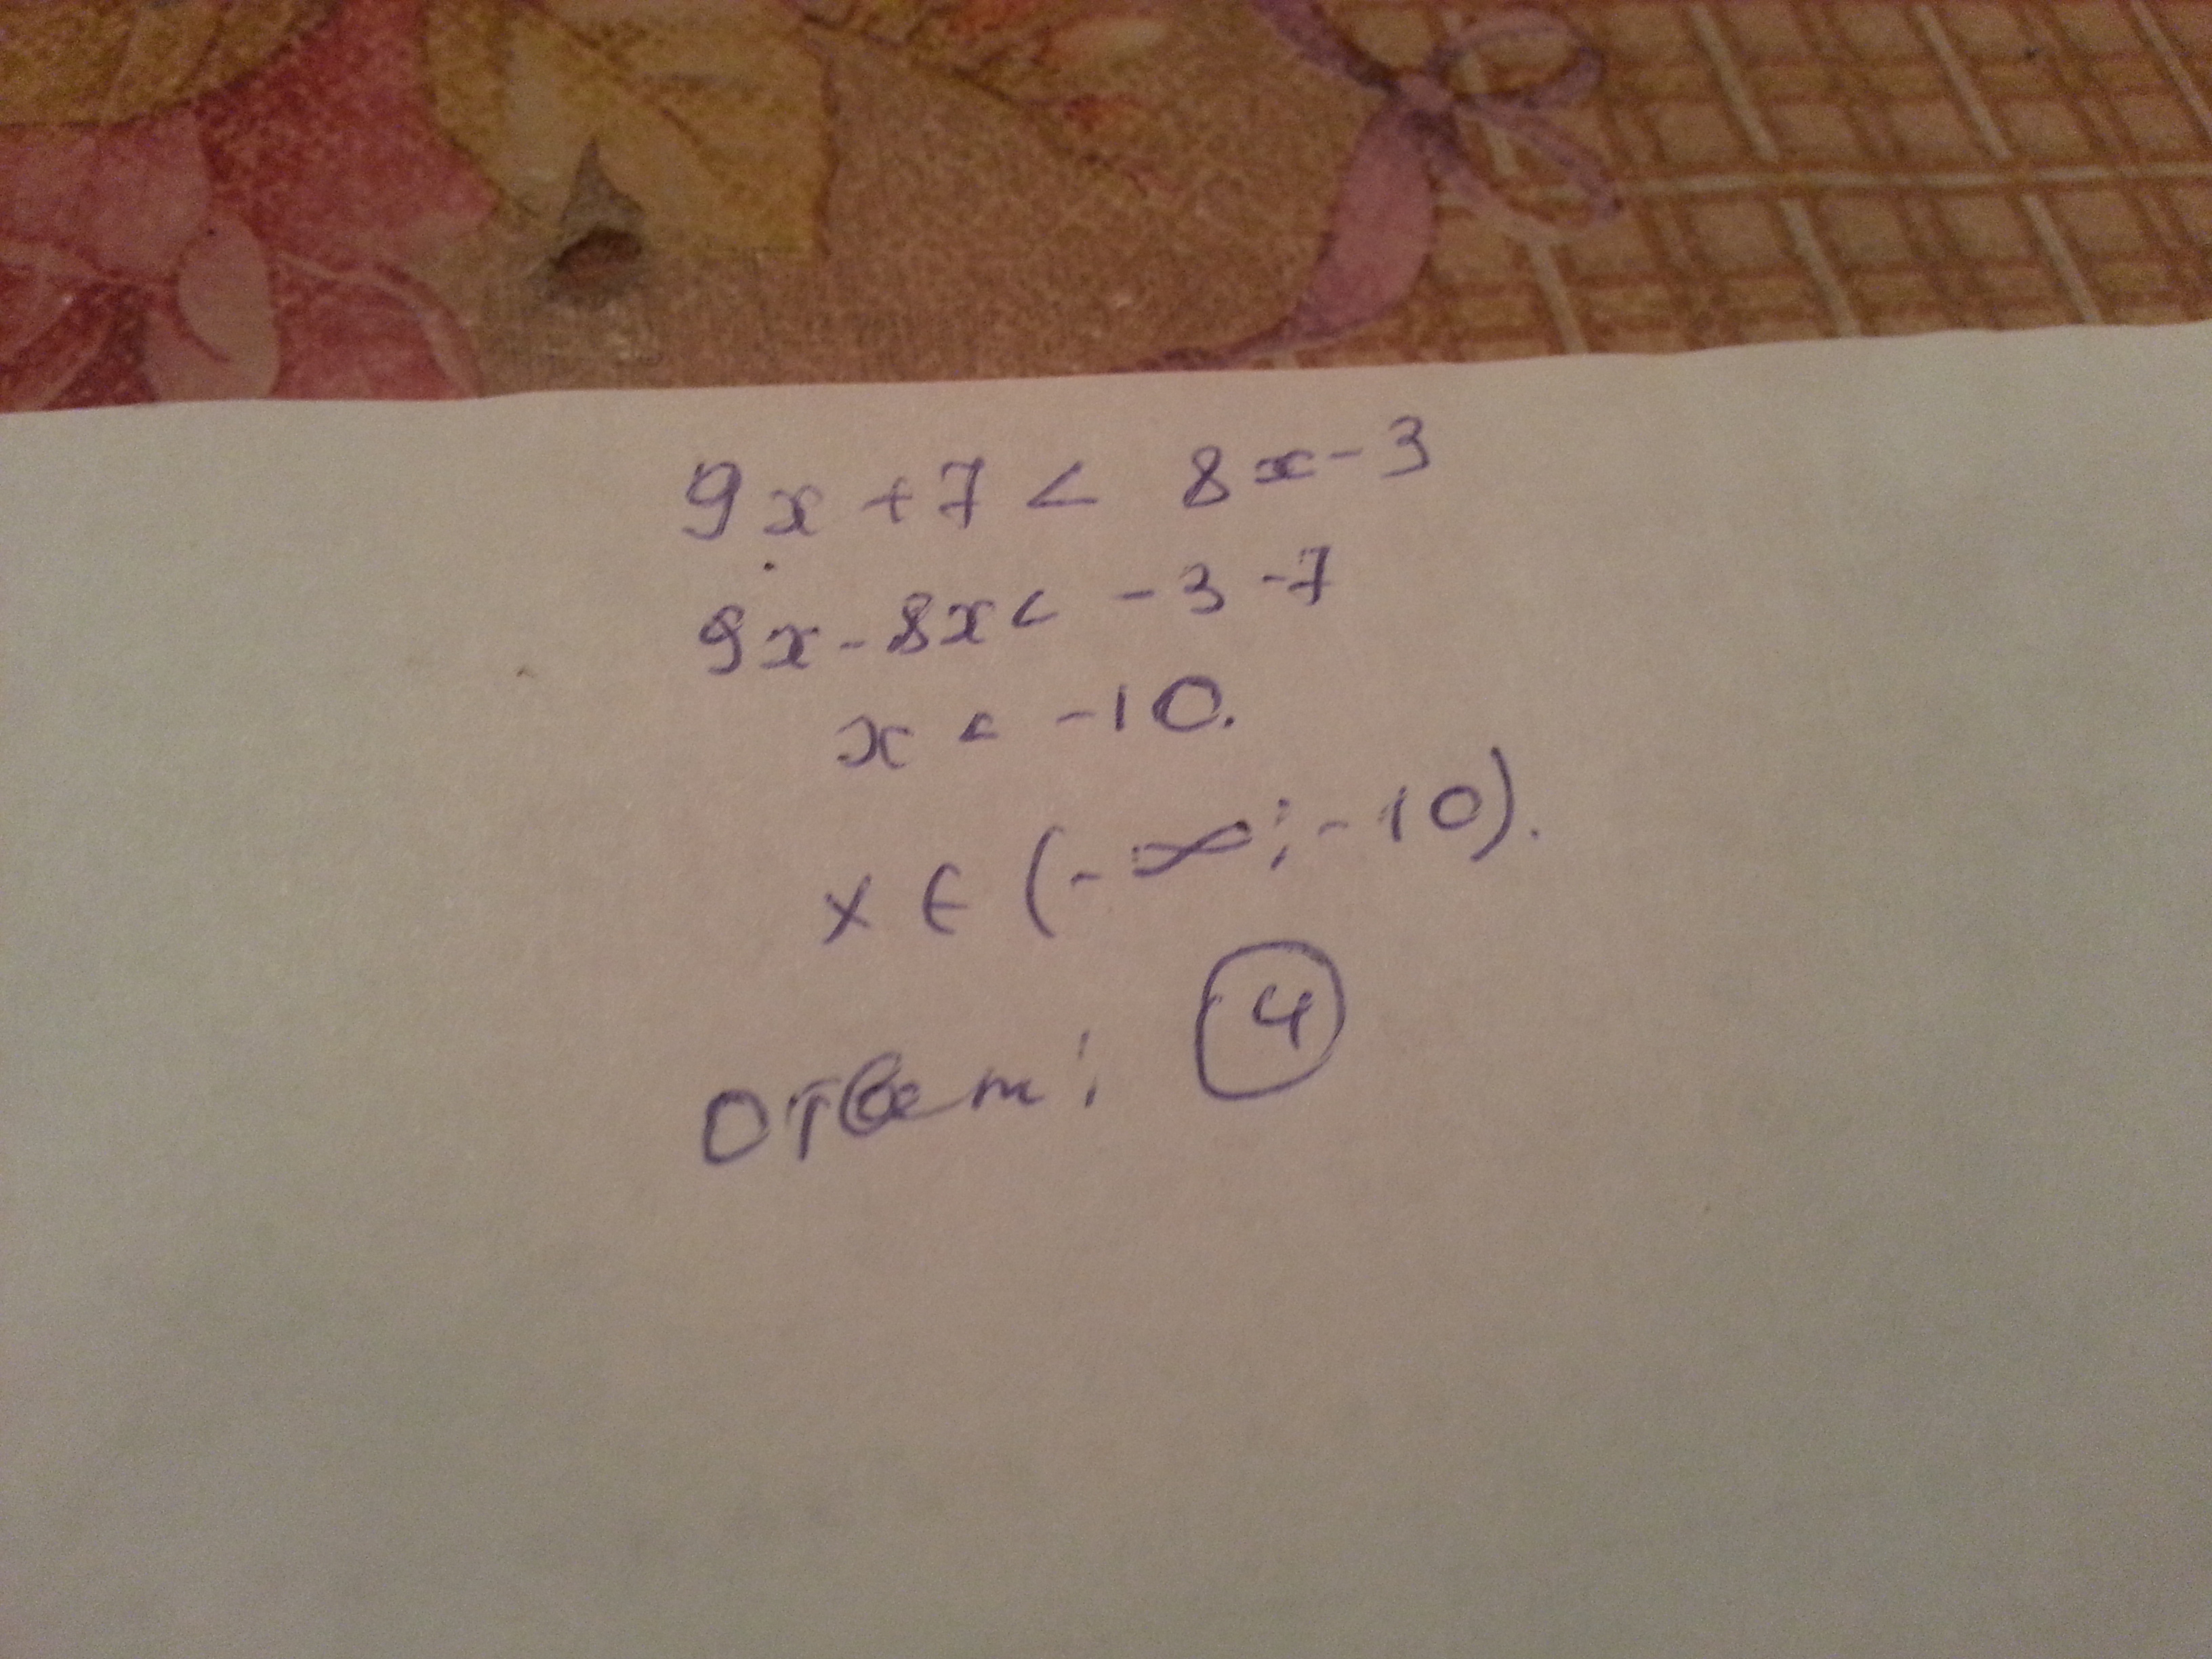 9x + 7 < 8x - 3
9x - 8x < -3 - 7
x < -10.
x ∈ (-∞; -10).
Ответ: 4